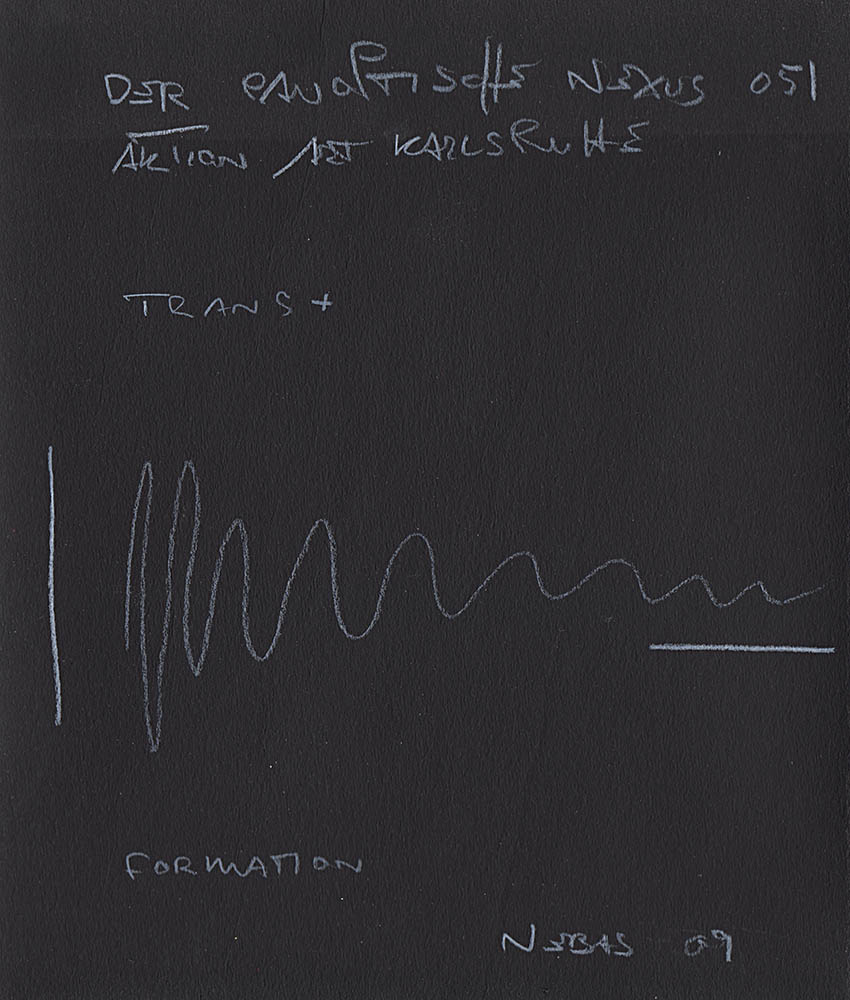 DER PANOPTISCHE NEXUS 051
AKTION ART KARLSRUHE
TRANS +
FORMATION
NEBAS 09